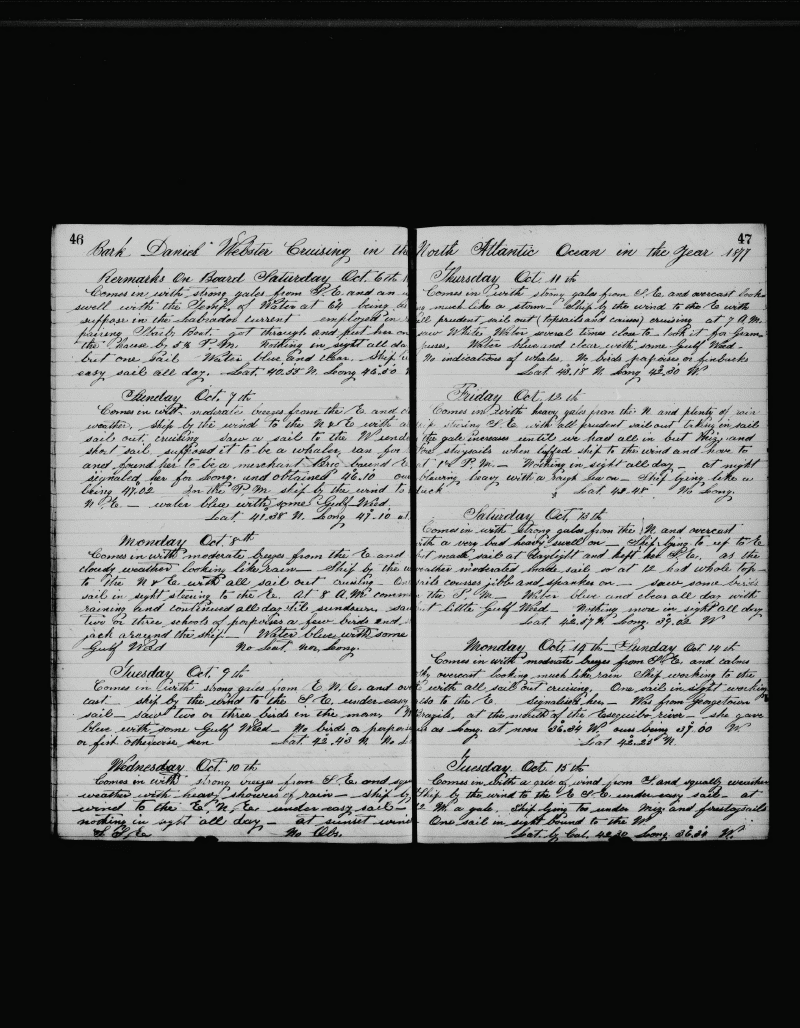 46
Bark Daniel Webster Cruising in the
Remarks On Board Saturday Oct. 6th
Comes in with strong gales from S.E. and an
swell with the Temp. of Water at 64 being as
suppose in the Labrador current employed in
pairing Starb. Boat. got through and put her on
the house by 5 h P.M. Nothing in sight all da
but one sail Water blue and clear. Ship
easy sail all day. Lat. 40.58 N. Long 46.50
Sunday Oct. 7th
Comes in with moderate breezes from the E and
weather, ship by the wind to the N & E with a
sail out, cruising saw a sail to the W under
short sail, supposed it to be a whaler, ran for
and found her to be a merchant Barc bound E
signaled her for Long. and obtained 46.10 our
being 47.02 In the P.M. ship by the wind to
N.E. — water blue with some Gulf Weed.
Lat. 41.38 N. Long 47.10
Monday Oct. 8th
Comes in with moderate breezes from the E and
cloudy weather looking like rain — Ship by the w
to the N & E with all sail out cruising — On
sail in sight steering to the E. At 8 A.M. comm
raining and continued all day til sundown, saw
two or three schools of porpoises a few birds and
jack around the ship — Water blue with some
Gulf Weed No Lat. nor Long.
Tuesday Oct. 9th
Comes in with strong gales from E.N.E. and ov
cast ship by the wind to the S.E. under easy
sail — saw two or three birds in the morn.
blue with some Gulf Weed No birds a porpois
or fish otherwise seen Lat. 42.43 N. No L
Wednesday Oct. 10th
Comes in with strong breezes from S.E. and squ
weather with heavy showers of rain — ship by
wind to the E.N.E. under easy sail —
nothing in sight all day — at sunset wind
S.S.E. No Obs.
47
North Atlantic Ocean in the Year 1877
Thursday Oct 11th
Comes in with strong gales from S.E. and overcast look
much like a storm — Ship by the wind to the E with
all prudent sail out (topsails and courses) cruising at 7 A.M.
saw White Water several times close to look it for Gram
puses. Water blue and clear with some Gulf Weed
No indications of whales. No birds porpoises or finbacks
Lat 43.18 N Long 42.30 W.
Friday Oct. 12th
Comes in with heavy gales from the N. and plenty of rain
ship steering S.E. with all prudent sail out taking in sails
the gale increases until we had all in but Miz, and
Fore staysails when luffed ship to the wind and hove to
at 1 h P.M. — Nothing in sight all day — at night
blowing heavy with a rough sea on — Ship lying like a
duck Lat. 42.48 No Long.
Saturday Oct, 13th
Comes in with strong gales from the N and overcast
with a very bad heavy swell on — Ship lying to up to E
but made sail at daylight and kept her S.E. as the
weather moderated made sail so at 12 had whole top
sails courses jibb and spanker on — saw some birds
in the P.M. — Water blue and clear all day with
but little Gulf Weed — Nothing more in sight all day
Lat. 42.57 N Long 39.02 W
Monday Oct, 14th — Sunday Oct 14th
Comes in with moderate breezes from S.E. and calms
overcast looking much like rain Ship working to the
E with all sail out cruising. One sail in sight working
also to the E. signalised her — Was from Georgetown
at the mouth of the Essequibo river — she gave
us as Long. at noon 36.34 W ours being 37.00 W
Lat 42.25 N.
Tuesday Oct. 15th
Comes in with a gale of wind from S and squally weather
Ship by the wind to the E.S.E. under easy sail — at
12 M. a gale. Ship lying too under Miz and forestaysails
One sail in sight bound to the W
Lat by Cal. 42.30 Long 36.34 W.